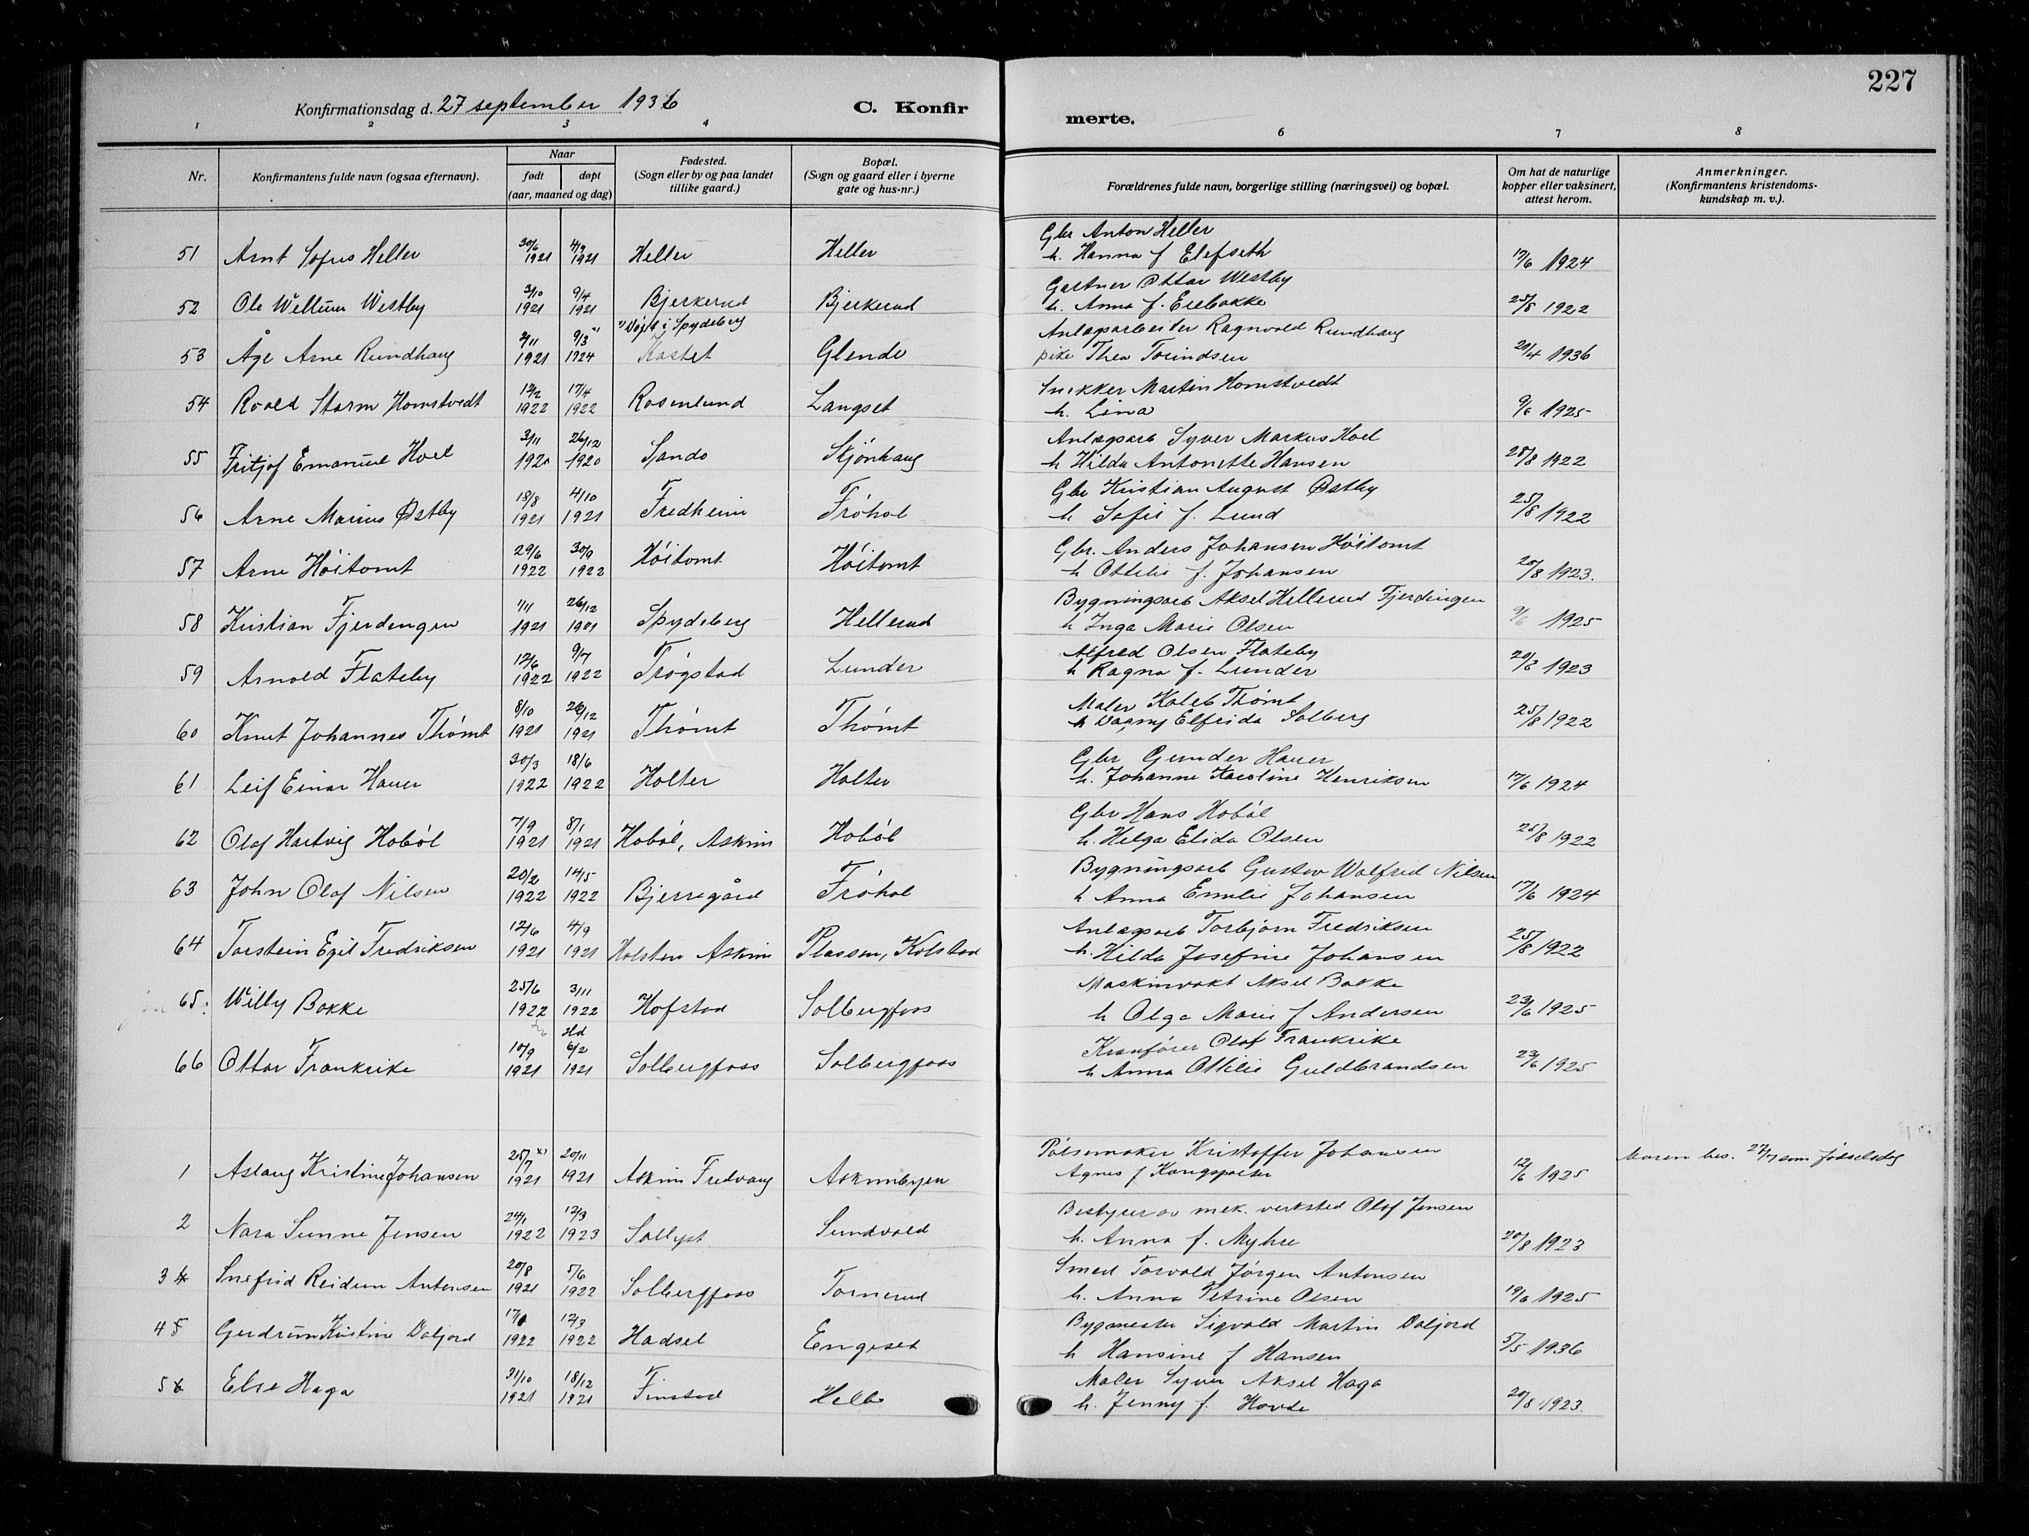 227
Konfirmationsdag d. 27 september 1936
C. Konfir
merte.
1 2 3 4 6 7 8
Nr.
Konfirmantens fulde navn (ogsaa efternavn).
Naar
født døpt
(aar, maaned og dag)
Fødested.
(Sogn eller by og paa landet
tillike gaard.)
Bopæl.
(Sogn og gaard eller i byerne
gate og hus-nr.)
Forældrenes fulde navn, borgerlige stilling (næringsvei) og bopæl.
Om hat de naturlige
kopper eller vaksinert,
attest herom.
Anmerkninger.
(Konfirmantens kristendoms-
kundskap m. v.).
Gbr Anton Heller
51 Arnt Sofus Heller 30/6 1921 4/9 1921 Heller Heller h. Hanna f Elefseth 17/6 1924
Gartner Ottar Westby
52 Ole Wellum Westby 3/10 1921 9/4 1921 Bjerkerud Bjerkerud h. Anna f. Eebakke 25/8 1922
x) Døpt i Spydeberg
Anlægsarbeider Ragnvald Rundhaug
53 Åge Arne Rundhaug 2/11 1921 9/3 1924 Kastet Glende pike Thea Torindsen 21/4 1936
Snekker Martin Homstvedt
54 Roald Storm Homstvedt 12/2 1922 17/4 1922 Rosenlund Langset h. Lina 9/6 1925
Anlægsarb Syver Markus Hoel
55 Fritjof Emanuel Hoel 3/11 1920 26/12 1920 Sando Skjønhaug h Hilda Antonette Hansen 28/8 1922
Gbr Kristian August Østby
56 Arne Marius Østby 18/8 1921 4/10 1921 Fredheim Frøhol h Sofie f. Lund 25/8 1922
Gbr. Anders Johansen Høitomt
57 Arne Høitomt 29/6 1922 30/9 1922 Høitomt Høitomt h Ottilie f. Johansen 20/8 1923.
Bygningsarb Aksel Hellerud Fjerdingen
58 Kristian Fjerdengen 1/11 1921 26/12 1921 Spydeberg Hellerud h Inga Marie Olsen 9/6 1925
Alfred Olsen Flateby
59 Arnold Flateby 12/6 1922 9/7 1922 Trøgstad Lunder h Ragna f. Lunder 20/8 1923
Maler Kaleb Thømt
60 Knut Johannes Thømt 8/10 1921 26/12 1921 Thømt Thømt h Dagny Elfrida Solberg 25/8 1922
Gbr Gunder Hauer
61 Leif Einar Hauer 30/3 1922 18/6 1922 Holter Holter h. Johanne Karoline Henriksen 17/6 1924
Gbr Hans Hobøl
62 Olaf Hartvig Hobøl 7/9 1921 8/1 1921 Hobøl, Askim Hobøl h. Helga Elida Olsen 25/8 1922
Bygningsarb Gustav Walfrid Nilsen
63 John Olaf Nilsen 20/2 1922 14/5 1922 Bjerregård Frøhol h Anna Emilie Johansen 17/6 1924
Anlægsarb Torbjørn Fredriksen
64 Torstein Egil Fredriksen 12/6 1921 4/9 1921 Holsten Askim Plassen, Kolstad h. Hilda Josefine Johansen 25/8 1922
Maskinvakt Aksel Bakke
65. Willy Bakke 25/6 1922 3/11 1922 Hofstad Solbergfoss h Olga Marie f Andersen 23/6 1925
Kranfører Olaf Frankrike
66 Ottar Frankrike 10/9 1921 Hd 6/2 1921 Solbergfoss Solbergfoss h Anna Ottilie Guldbrandsen 23/6 1925
Pølsemaker Kristoffer Johansen
1 Aslaug Kristine Johansen 25/7 x) 1921 20/11 1921 Askim Fredvang Askimbyen Agnes f 12/6 1925 Moren bes. 27/7 som fødselsdag
Bestyrer av mek. verksted Olaf Jensen
2 Nora Sunne Jensen 24/1 1922 12/3 1923 Sollyst Sundvold h. Anna f. Myhre 20/8 1923
Smed Torvald Jørgen Antonsen
3 4 Snefrid Reidun Antonsen 20/8 1921 5/6 1922 Solbergfoss Tornerud h. Anna Petrine Olsen 19/6 1925
Bygmester Sigvald Martin Daljord
4 5 Gudrun Kristine Daljord 17/1 1922 12/3 1922 Hadsel Engeset h Hansine f Hansen 5/5 1936
Maler Syver Aksel Haga
5 6 Else Haga 31/10 1921 18/12 1921 Finstad Helle h. Jenny f. Hovde 20/8 1923.